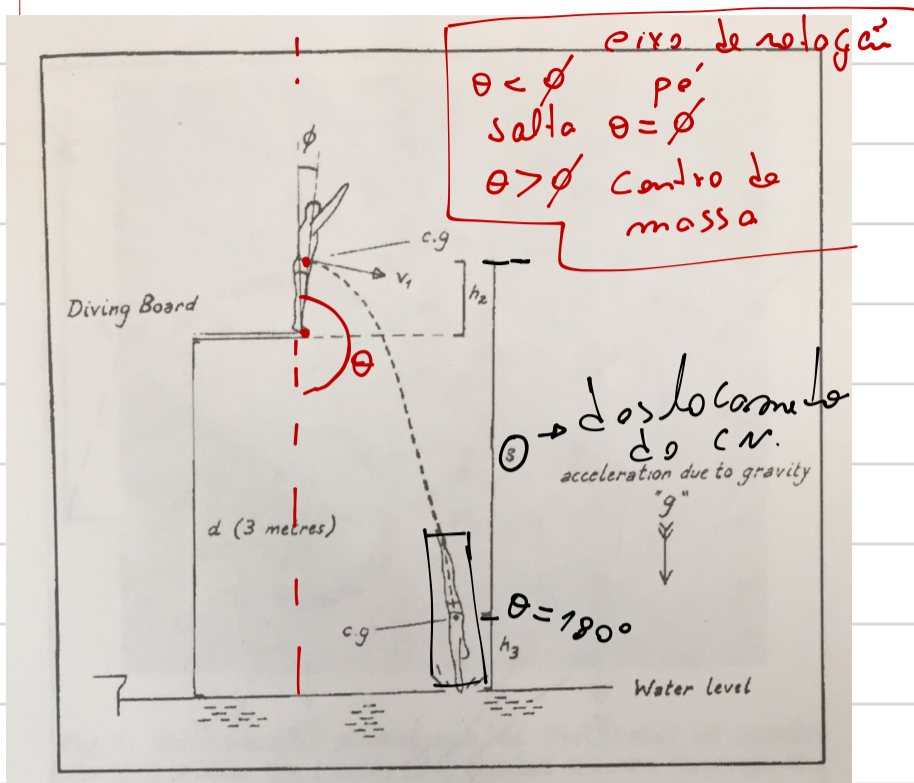 eixo de rotação
θ < ϕ pé
salta θ = ϕ
θ > ϕ Centro de
massa
ϕ
c.g
v₁
h₂
Diving Board
θ
ⓢ → deslocamento
do
acceleration due to gravity
"g"
d (3 metres)
θ = 180°
c.g
h₃
Water level